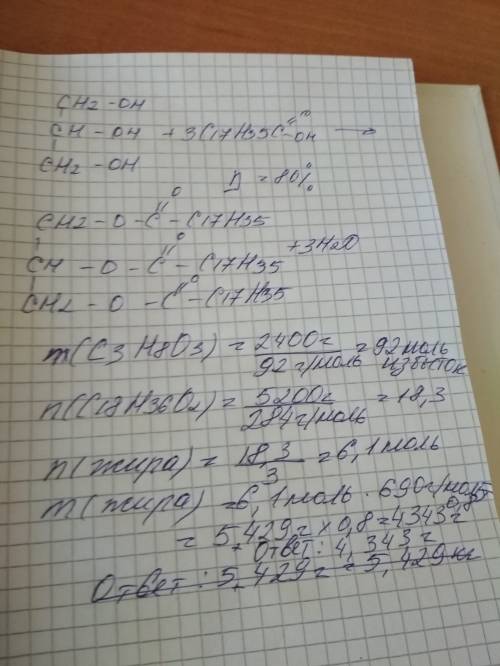 CH2 - OH
CH - OH + 3C17H35C - OH →
O
CH2 - OH
η = 80%
O
CH2 - O - C - C17H35
O
CH - O - C - C17H35 + 3H2O
O
CH2 - O - C - C17H35
m(C3H8O3) = 2400г / 92 г/моль = 92 моль
избыток
n(C18H36O2) = 5200г / 284г/моль = 18,3
n(жира) = 18,3 / 3 = 6,1 моль
m(жира) = 6,1 моль · 690г/моль
= 5,429г × 0,8 = 4343г
Ответ: 4,343г
Ответ: 5,429г = 5,429кг